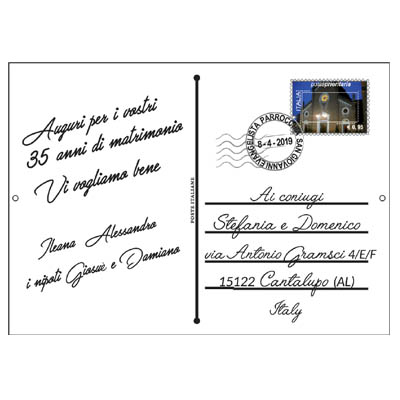 Auguri per i vostri
35 anni di matrimonio
Vi vogliamo bene
Ileana Alessandro
i nipoti Giosuè e Damiano
POSTE ITALIANE
ITALIA
postaprioritaria
€ 0,95
PARROCCHIA SAN GIOVANNI EVANGELISTA
8-4-2019
Ai coniugi
Stefania e Domenico
via Antonio Gramsci 4/E/F
15122 Cantalupo (AL)
Italy